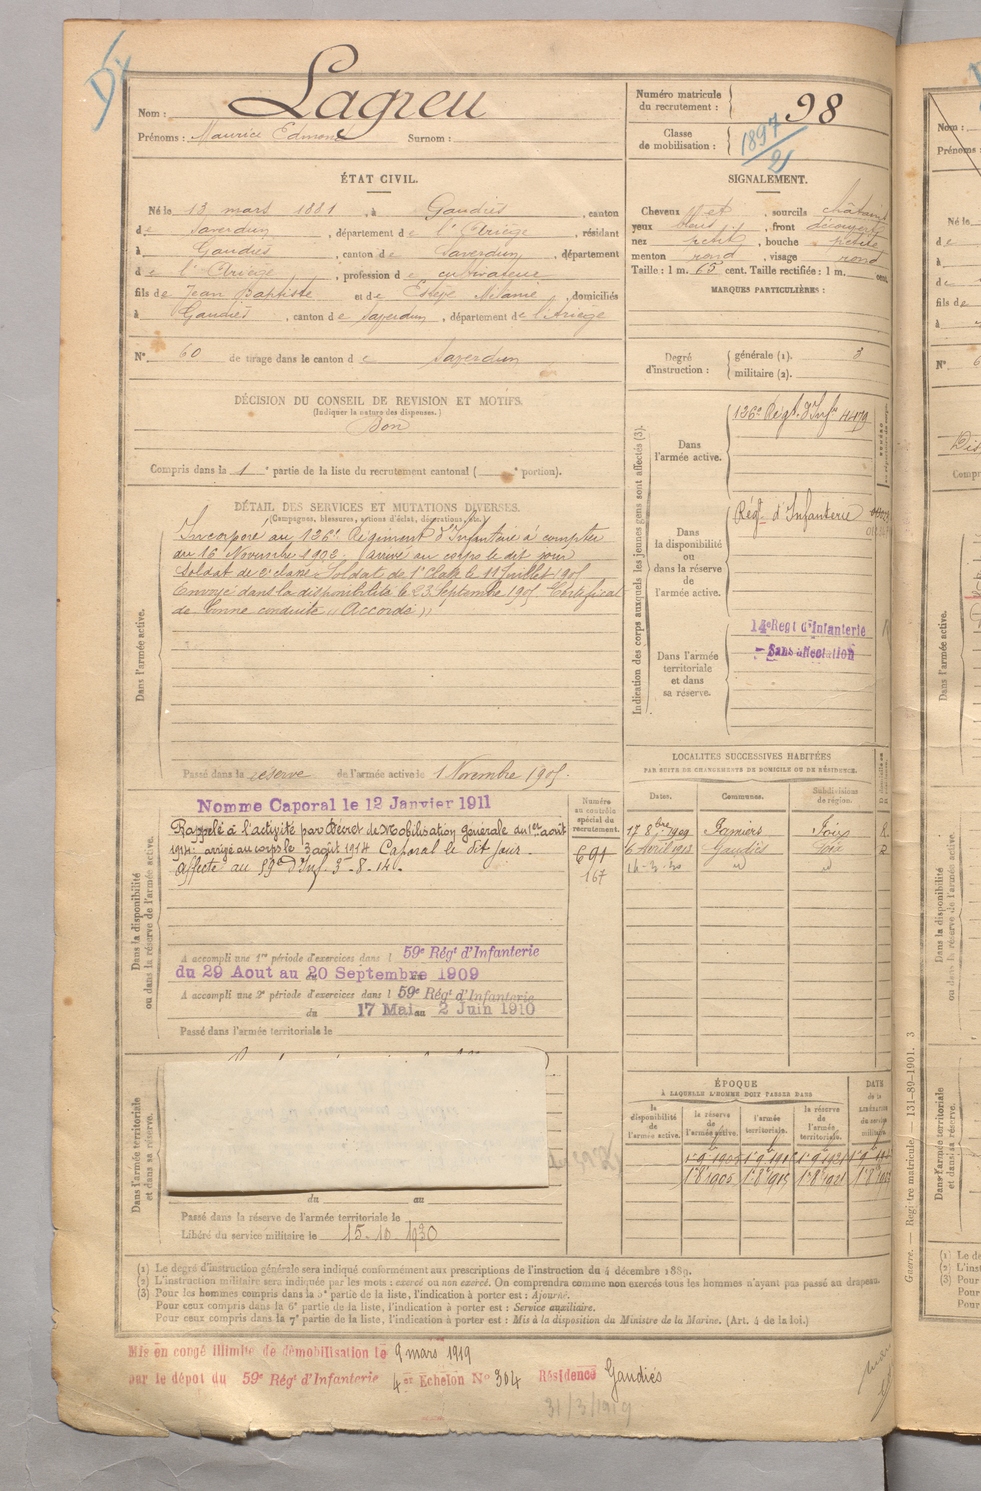 Nom : Lagreu
Prénoms : Maurice Edmond Surnom :
Numéro matricule du recrutement : 98
Classe de mobilisation : 1897/21
ÉTAT CIVIL.
Né le 13 mars 1881, à Gaudiès, canton
de Saverdun, département de l'Ariège, résidant
à Gaudiès, canton de Saverdun, département
de l'Ariège, profession de cultivateur
fils de Jean Baptiste et de Estèpe Mélanie, domiciliés
à Gaudiès, canton de Saverdun, département de l'Ariège
N° 60 de tirage dans le canton de Saverdun
SIGNALEMENT.
Cheveux et, sourcils châtains
yeux bleus, front découvert
nez petit, bouche petite
menton rond, visage rond
Taille : 1 m. 65 cent. Taille rectifiée : 1 m. cent.
MARQUES PARTICULIÈRES :
Degré d'instruction : générale (1). 3
militaire (2).
DÉCISION DU CONSEIL DE REVISION ET MOTIFS.
(Indiquer la nature des dispenses.)
Bon
Compris dans la 1e partie de la liste du recrutement cantonal ( e portion).
DÉTAIL DES SERVICES ET MUTATIONS DIVERSES.
(Campagnes, blessures, actions d'éclat, décorations, etc.)
Dans l'armée active.
Incorporé au 126e Régiment d'Infanterie à compter
du 16 Novembre 1902. Arrivé au corps le dit jour
soldat de 2e classe. Soldat de 1e classe le 11 Juillet 1905
Envoyé dans la disponibilité le 23 Septembre 1905. Certificat
de bonne conduite "Accordé"
Passé dans la réserve de l'armée active le 1 Novembre 1905.
Indication des corps auxquels les jeunes gens sont affectés (3).
Dans l'armée active.
126e Régt d'Infie 4479
Dans la disponibilité ou dans la réserve de l'armée active.
Régt d'Infanterie
Dans l'armée territoriale et dans sa réserve.
14e Regt d'Infanterie
Sans affectation
Dans la disponibilité ou dans la réserve de l'armée active.
Nommé Caporal le 12 Janvier 1911
Rappelé à l'activité par Décret de Mobilisation générale du 1er août
1914. arrivé au corps le 3 août 1914 Caporal le dit jour.
Affecté au 59e d'Inf. 3-8-14.
Numéro au contrôle spécial du recrutement.
691
167
A accompli une 1re période d'exercices dans l 59e Régt d'Infanterie
du 29 Aout au 20 Septembre 1909
A accompli une 2e période d'exercices dans l 59e Régt d'Infanterie
du 17 Mai au 2 Juin 1910
Passé dans l'armée territoriale le
LOCALITÉS SUCCESSIVES HABITÉES
PAR SUITE DE CHANGEMENTS DE DOMICILE OU DE RÉSIDENCE.
Dates. Communes. Subdivisions de région.
17 8bre 1909 Pamiers Foix R.
6 Avril 1912 Gaudiès Foix R
14-3-30 " "
ÉPOQUE
À LAQUELLE L'HOMME DOIT PASSER DANS
la disponibilité de l'armée active. la réserve de l'armée active. l'armée territoriale. la réserve de l'armée territoriale.
DATE de la LIBÉRATION du service militaire.
Dans l'armée territoriale et dans sa réserve.
du au
Passé dans la réserve de l'armée territoriale le
Libéré du service militaire le 15-10-1930
(1) Le degré d'instruction générale sera indiqué conformément aux prescriptions de l'instruction du 4 décembre 1889.
(2) L'instruction militaire sera indiquée par les mots : exercé ou non exercé. On comprendra comme non exercés tous les hommes n'ayant pas passé au drapeau.
(3) Pour les hommes compris dans la 5e partie de la liste, l'indication à porter est : Ajourné.
Pour ceux compris dans la 6e partie de la liste, l'indication à porter est : Service auxiliaire.
Pour ceux compris dans la 7e partie de la liste, l'indication à porter est : Mis à la disposition du Ministre de la Marine. (Art. 4 de la loi.)
Mis en congé illimité de démobilisation le 9 mars 1919
par le dépôt du 59e Régt d'Infanterie 4e Echelon N° 304 Résidence Gaudiès
31/3/1919
Guerre. — Registre matricule. — 131-89-1901. 3